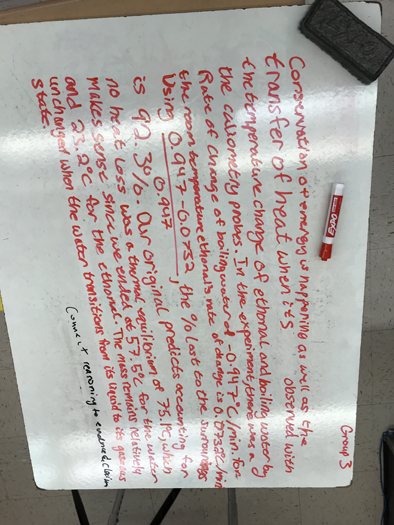 Group 3
Conservation of energy is happening as well as the
transfer of heat when it's observed with
the temperature change of ethanol and boiling water by
the caliometry probes. In the experiment, there was a
Rate of change of boiling water of -0.947°C/min. for
the room temperature ethanol's rate of change is 0.0752/min
Using 0.947-0.0752, the % lost to the surrounds
0.947
is 92.3%. Our original predicts accounting for
no heat loss was a thermal equilibrium of 75.1°C, which
makes sense since we ended at 57.5°C for the water
and 23.2°C for the ethanol. The mass remains relatively
unchanged when the water transitions from its liquid to its gaseous
state.
Connect reasoning to evidence, claim
EXPO